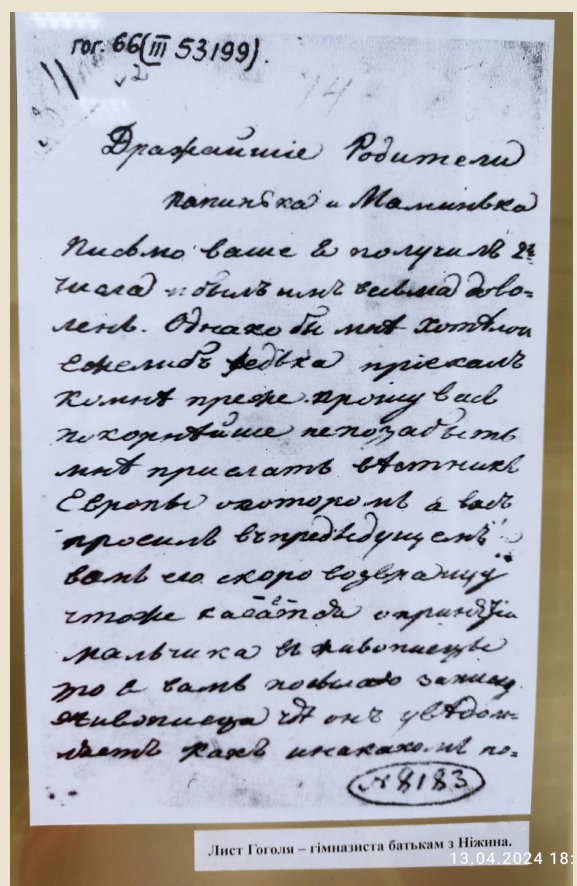 гог. 66 (III 53199).
Дражайшіе Родители
папинька и Маминька
Письмо ваше я получилъ 2г
числа и былъ имъ весьма дово=
ленъ. Однако бы мнѣ хотѣлось
Ежелибъ Ѳедька пріехалъ
комнѣ преже. прошу васъ
покорнѣйше непозабыть
мнѣ прислать вѣстникъ
Европы окоторомъ я васъ
просилъ въпредъедущемъ
вамъ его скоро возвращу
чтоже касается опринятіи
мальчика въ живописцы
то я вамъ посылаю записку
живописца гдѣ онъ увѣдом=
ляетъ какъ инакакомъ по=
№ 8183
Лист Гоголя – гімназиста батькам з Ніжина.
13.04.2024 18: